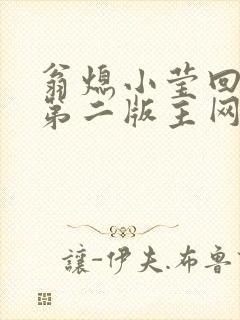 翁熄小莹回
第二版主网
讓-伊夫.布魯